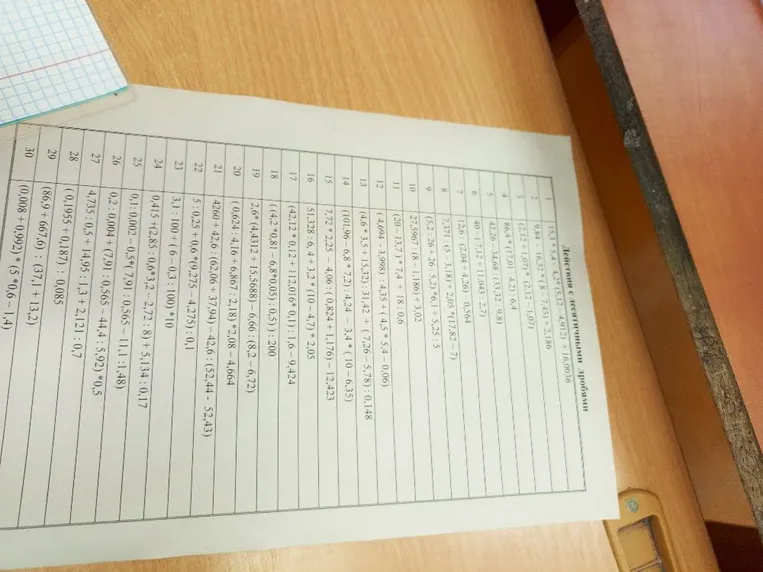 Действия с десятичными дробями
1 15,3 * 3,4 - 4,2* (5,12 - 4,912) + 16,0036
2 9,84 - 16,32 * ( 8 - 7,45) + 2,186
3 (2,12 + 1,07) * (2,12 - 1,07)
4 86,4 * (17,01 : 4,2) : 6,4
5 42,26 - 34,68 : (33,32 : 9,8)
6 40 - (7,12 + 11,043 : 2,7)
7 12,6 : (2,04 + 4,26) - 0,564
8 7,371 : (5 - 3,18) + 2,05 * (17,82 - 7)
9 (5,2 : 26 + 26 : 5,2) *6,1 + 5,25 : 5
10 27,5967 : (8 - 1,186) + 3,02
11 (20 - 13,7) * 7,4 + 18 : 0,6
12 ( 4,694 - 3,998) : 4,35 + ( 4,5 * 5,4 - 0,06)
13 (4,6 * 3,5 + 15,32) : 31,42 + ( 7,26 - 5,78) : 0,148
14 (101,96 - 6,8 * 7,2) : 4,24 - 3,4 * ( 10 - 6,35)
15 7,72 * 2,25 - 4,06 : ( 0,824 + 1,176) - 12,423
16 51,328 : 6,4 + 3,2 * (10 - 4,7) * 2,05
17 (42,12 * 0,12 + 112,016* 0,1) : 1,6 - 9,424
18 ( (4,2 *0,81 - 6,8*0,05) : 0,5) ) : 200
19 2,6* (4,4312 + 15,5688) - 6,66 : (8,2 - 6,72)
20 ( 0,624 : 4,16 + 6,867 : 2,18) *2,08 - 4,664
21 4260 + 42,6 : (62,06 + 37,94) - 42,6 : (52,44 - 52,43)
22 5 : 0,25 + 0,6 *(9,275 - 4,275) : 0,1
23 3,1 : 100 + ( 6 - 0,3 : 100) *10
24 0,415 +(2,85 : 0,6*3,2 - 2,72 : 8) + 5,134 : 0,17
25 0,1: 0,002 - 0,5*( 7,91 : 0,565 - 11,1 :1,48)
26 0,2 : 0,004 + (7,91 : 0,565 - 44,4 : 5,92) *0,5
27 4,735 : 0,5 + (4,95 : 1,3 + 2,121 : 0,7
28 ( 0,1955 + 0,187) : 0,085
29 (86,9 + 667,6) : (37,1 + 13,2)
30 (0,008 + 0,992) * (5 *0,6 - 1,4)